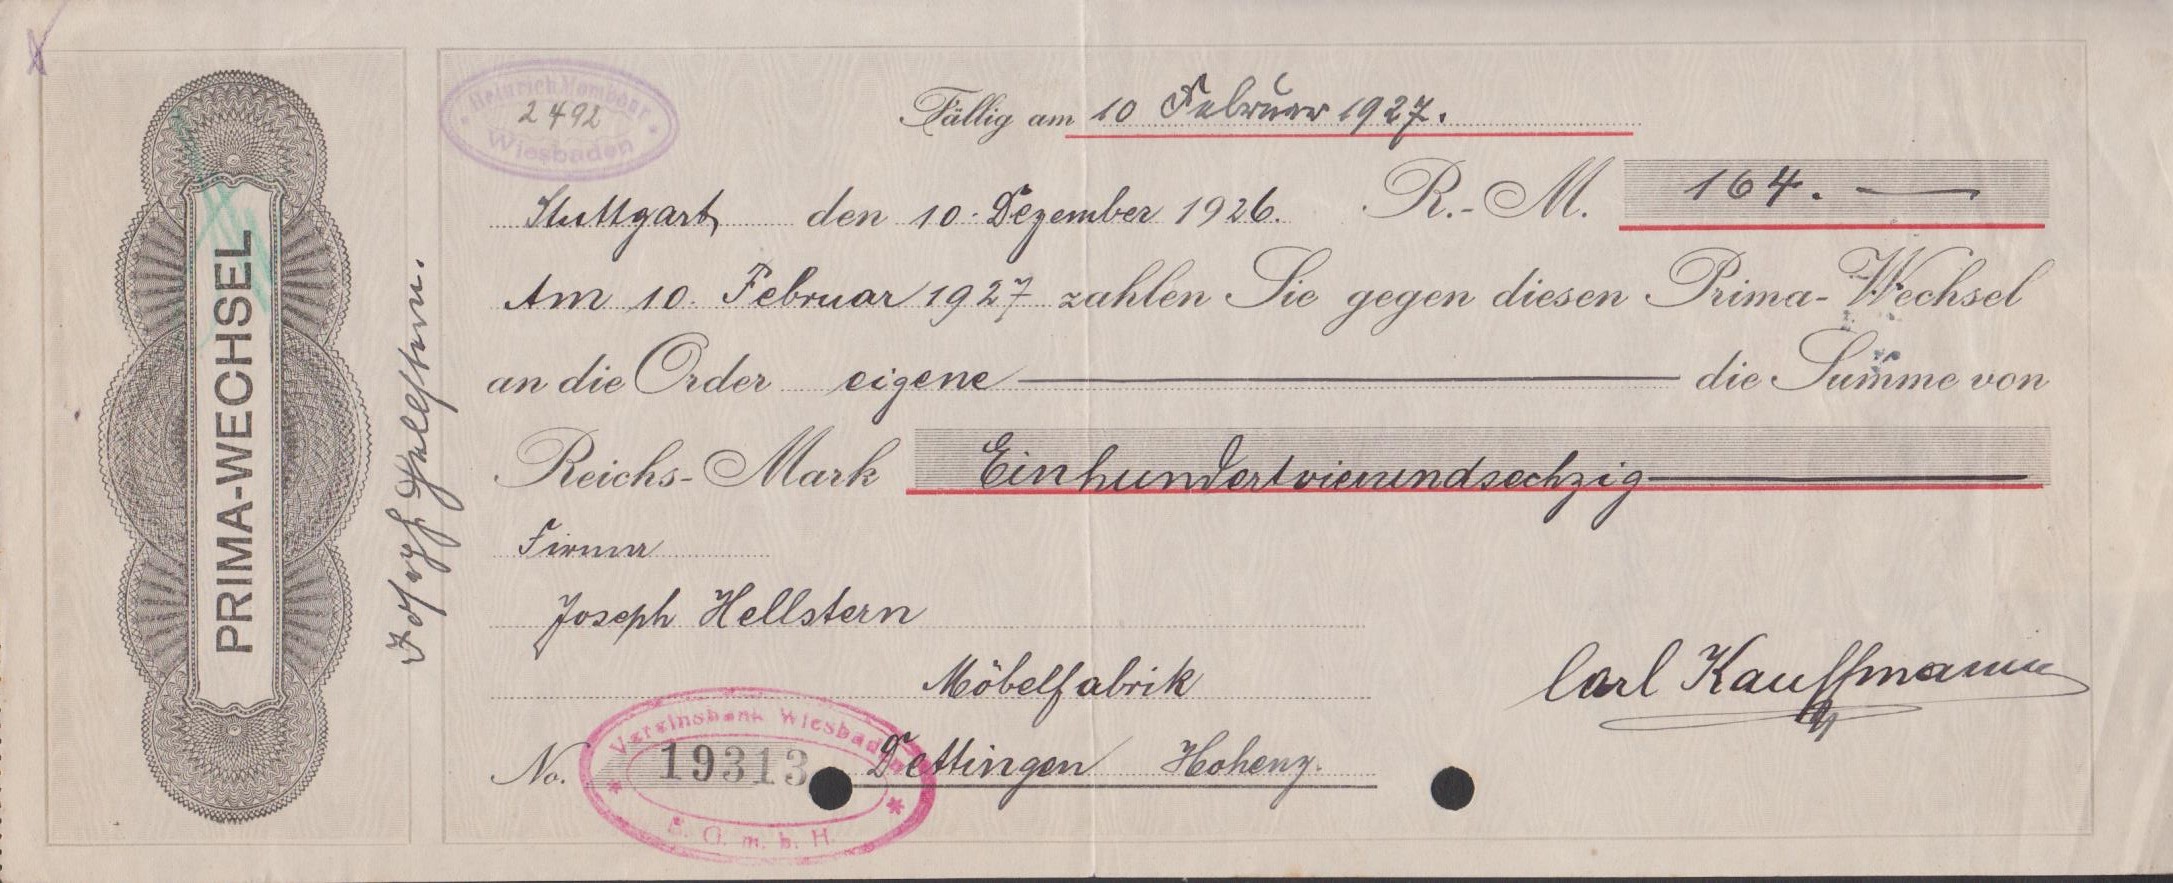 PRIMA-WECHSEL
Joseph Hellstern.
Heinrich
2492
Wiesbaden
Fällig am 10 Februar 1927.
Stuttgart, den 10. Dezember 1926. R.-M. 164. —
Am 10. Februar 1927 zahlen Sie gegen diesen Prima-Wechsel
an die Order eigene — die Summe von
Reichs-Mark Einhundertvierundsechzig —
Firma
Joseph Hellstern
Möbelfabrik
Carl Kauffmann
No. 19313 Dettingen Hohenz.
Vereinsbank Wiesbaden
E. G. m. b. H.